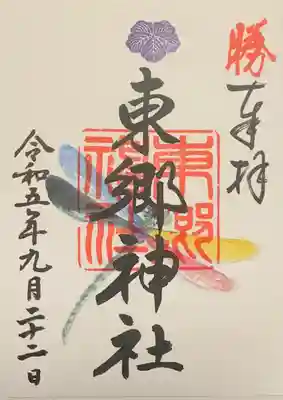 勝
奉拝
東郷神社
東郷神社
令和五年九月二十二日